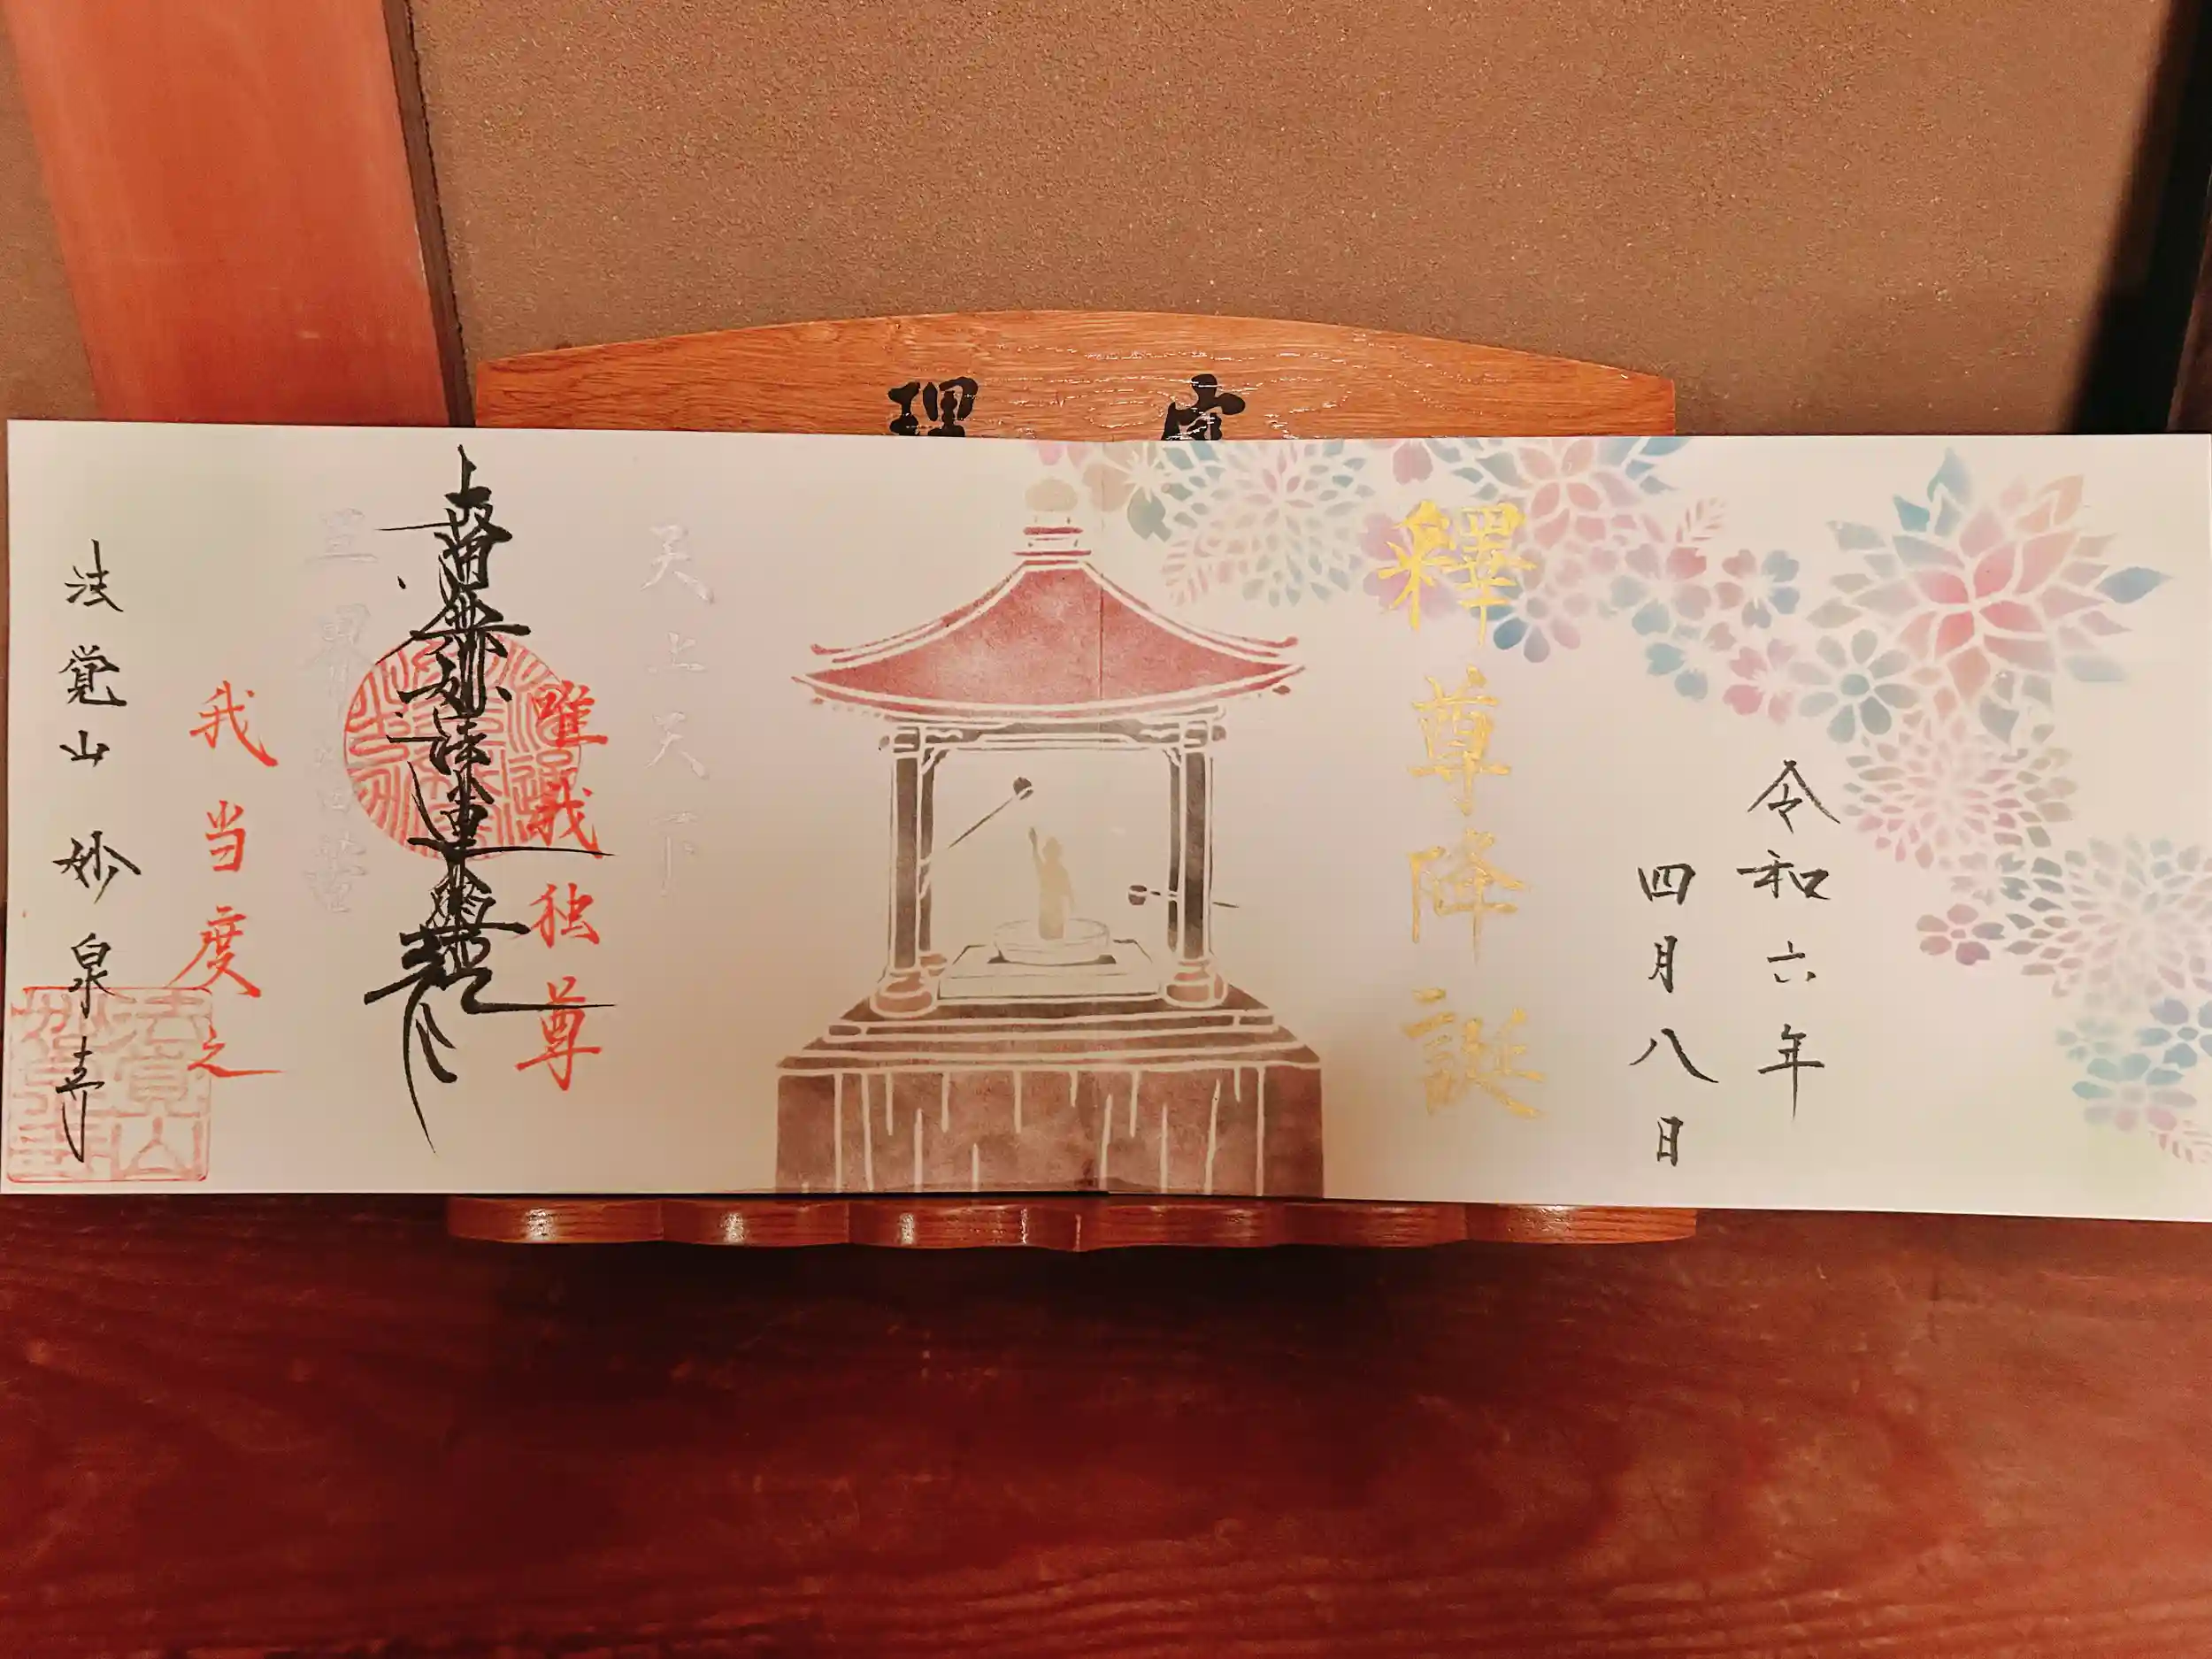 令和六年
四月八日
釋尊降誕
天上天下
唯我独尊
南無妙法蓮華経
三界皆苦
我当度之
法覚山 妙泉寺
理